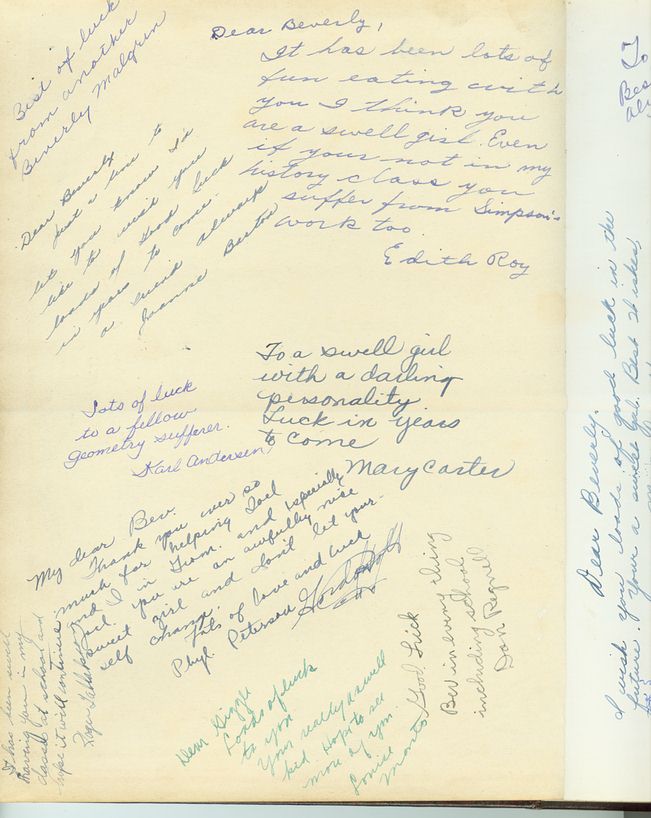 Best of luck
from another
Beverly Malgrin
Dear Beverly,
It has been lots of
fun eating with
you I think you
are a swell girl. Even
if your not in my
history class you
suffer from Simpson's
work too.
Edith Roy
Dear Beverly
Just a line to
let you know I'd
like to wish you
loads of good luck
in years to come.
a friend always
Joanne Burton
To a swell girl
with a darling
personality
Luck in years
to come
Mary Carter
Lots of luck
to a fellow
geometry sufferer.
Karl Andersen
My dear Bev.
Thank you ever so
much for helping Joel
and I in Gram. and especially
Joel. you are an awfully nice
sweet girl and don't let your-
self change.
Lots of love and luck
Phyl. Peterson
It has been swell
having you in my
classes at school and
hope it will continue
Roger
Good Luck
Bev in every thing
including school
Don Regnell
Dear Giggie
Loads of luck
to you
Your really a swell
kid. Hope to see
more of you.
Louise
Dear Beverly.
I wish you loads of good luck in the
future. Your a swell girl. Best Wishes,